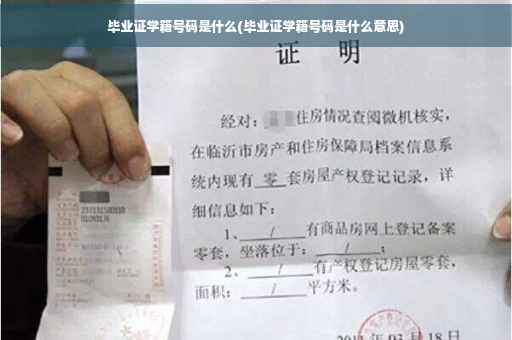 毕业证学籍号码是什么(毕业证学籍号码是什么意思)
证 明
经对:住房情况查阅微机核实,
在临沂市房产和住房保障局档案信息系
统内现有 零 套房屋产权登记记录,详
细信息如下:
1、 / 有商品房网上登记备案
零套,坐落位于: / ;
2、 / 有产权登记房屋零套,
面积: / 平方米。
03月18日